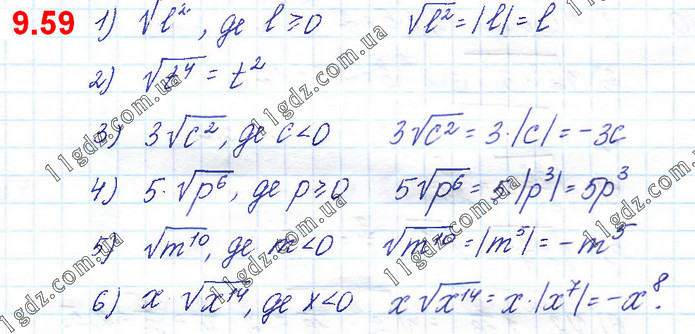 9.59 1) √l², де l ≥ 0 √l² = |l| = l
2) √t⁴ = t²
3) 3√c², де c < 0 3√c² = 3·|c| = -3c
4) 5·√p⁶, де p ≥ 0 5√p⁶ = 5|p³| = 5p³
5) √m¹⁰, де m < 0 √m¹⁰ = |m⁵| = -m⁵
6) x·√x¹⁴, де x < 0 x√x¹⁴ = x·|x⁷| = -x⁸.
11gdz.com.ua
11gdz.com.ua
11gdz.com.ua
11gdz.com.ua
11gdz.com.ua
11gdz.com.ua